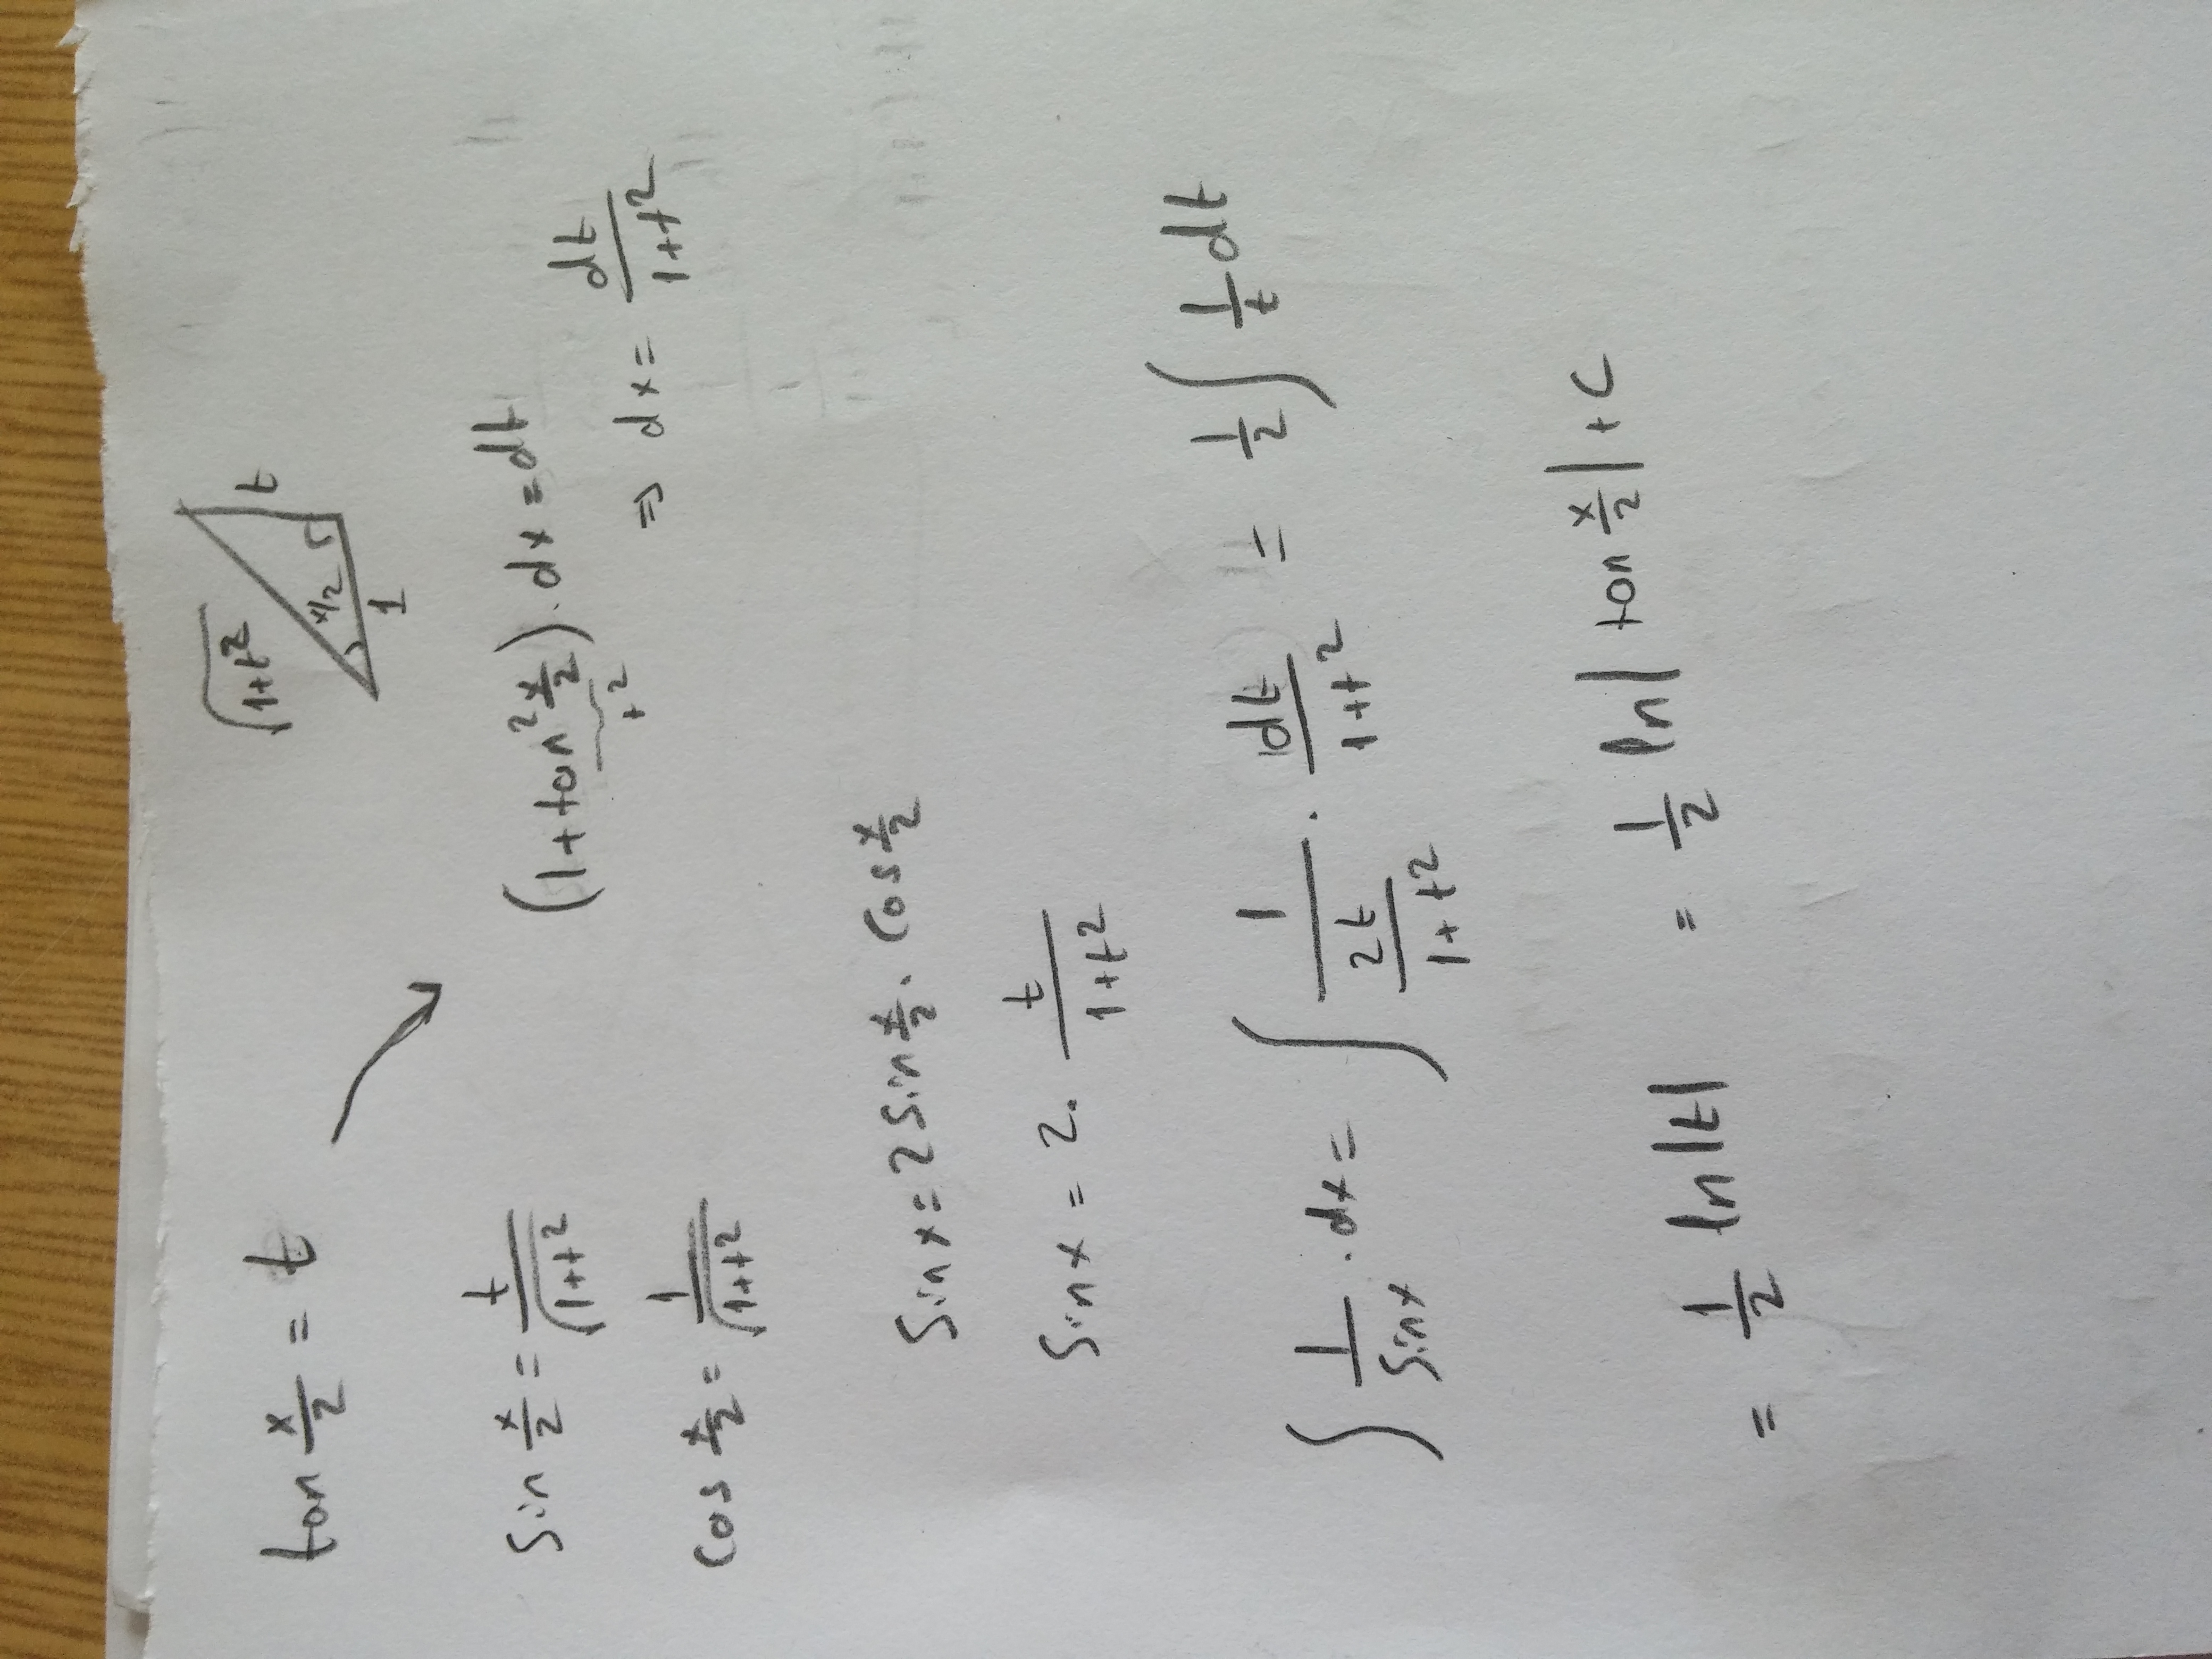 tan x/2 = t
√(1+t²) x/2 1 t
sin x/2 = t/√(1+t²)
(1+tan² x/2).dx=dt
t²
cos x/2 = 1/√(1+t²)
⇒ dx = dt/(1+t²)
sinx=2sin x/2 . cos x/2
sinx = 2. t/(1+t²)
∫ 1/sinx .dx = ∫ 1/(2t/(1+t²)) . dt/(1+t²) = 1/2 ∫ 1/t dt
= 1/2 ln|t| = 1/2 ln|tan x/2|+c